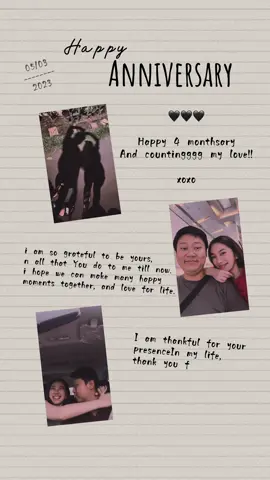 Happy
ANNIVERSARY
05/03
2023
🖤🖤🖤
Happy 4 monthsary
And countingggg my love!!
xoxo
i am so grateful to be yours,
n all that You do to me till now.
i hope we can make many happy
moments together, and love for life.
I am thankful for your
presenceIn my life,
thank you f